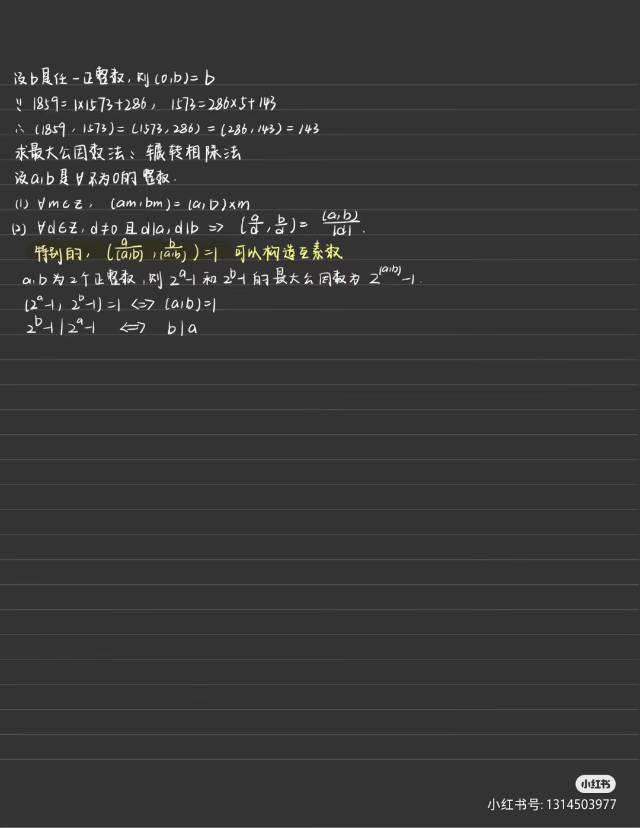 设b是任一正整数,则(0,b)=b
∵ 1859=1×1573+286, 1573=286×5+143
∴ (1859,1573)=(1573,286)=(286,143)=143
求最大公因数法:辗转相除法
设a,b是∀不为0的整数.
(1) ∀m∈Z, (am,bm)=(a,b)×m
(2) ∀d∈Z,d≠0 且 d|a,d|b => (a/d, b/d) = (a,b)/|d| .
特别的,(a/(a,b), b/(a,b))=1 可以构造互素数
a,b为2个正整数,则2^a-1和2^b-1的最大公因数为2^(a,b)-1.
(2^a-1, 2^b-1)=1 <=> (a,b)=1
2^b-1|2^a-1 <=> b|a
小红书
小红书号: 1314503977